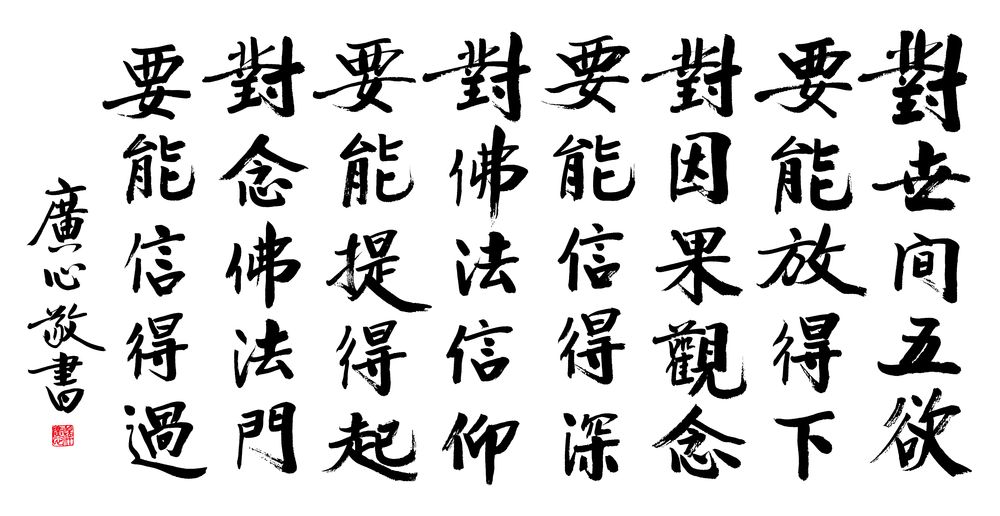 對世间五欲
要能放得下
對因果觀念
要能信得深
對佛法信仰
要能提得起
對念佛法門
要能信得過
廣心敬書